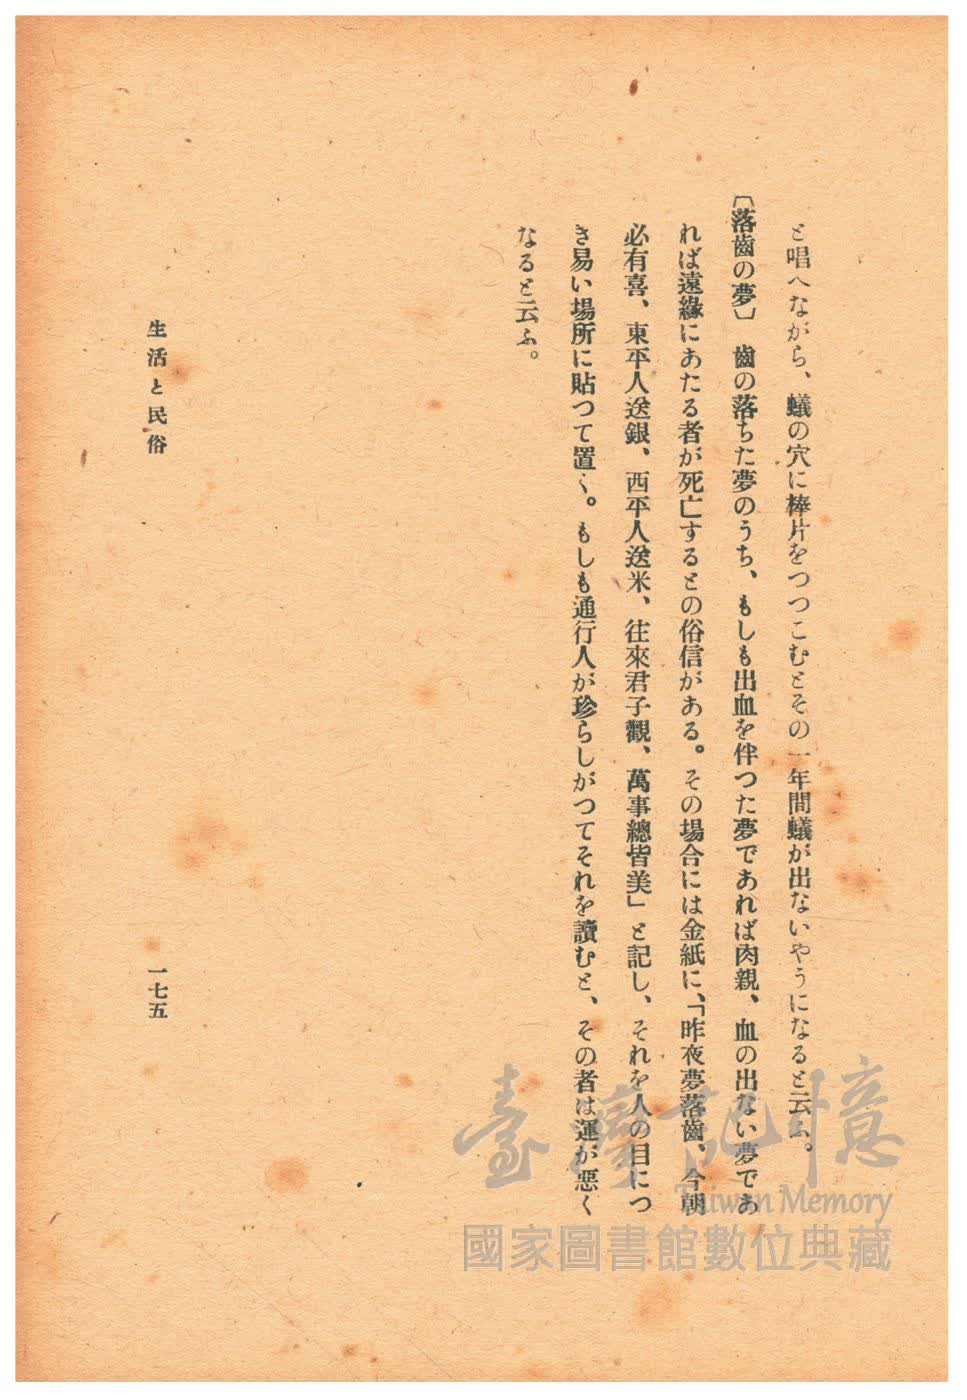 と唱へながら、蟻の穴に棒片をつつこむとその一年間蟻が出ないやうになると云ふ。
〔落齒の夢〕　齒の落ちた夢のうち、もしも出血を伴つた夢であれば肉親、血の出ない夢であ
れば遠緣にあたる者が死亡するとの俗信がある。その場合には金紙に、「昨夜夢落齒、今朝
必有喜、東平人送銀、西平人送米、往來君子觀、萬事總皆美」と記し、それを人の目につ
き易い場所に貼つて置く。もしも通行人が珍らしがつてそれを讀むと、その者は運が惡く
なると云ふ。
生活と民俗
一七五
臺灣記憶
Taiwan Memory
國家圖書館數位典藏